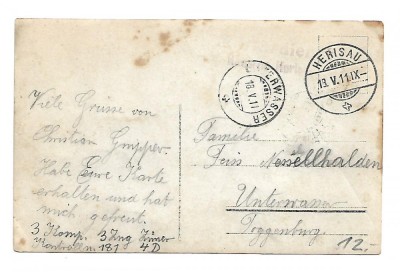 HERISAU
13.V.11.IX-
UNTERWASSER
13.V.11
Viele Grüsse von
Christian Gmpper.
Habe Eure Karte
erhalten und hat
mich gefreut.
3 Komp. 3 Zug Zimer
Kontroll n. 181 4D
Familie
Feis Nesselhalden
Unterwasser
Toggenburg.
12.-